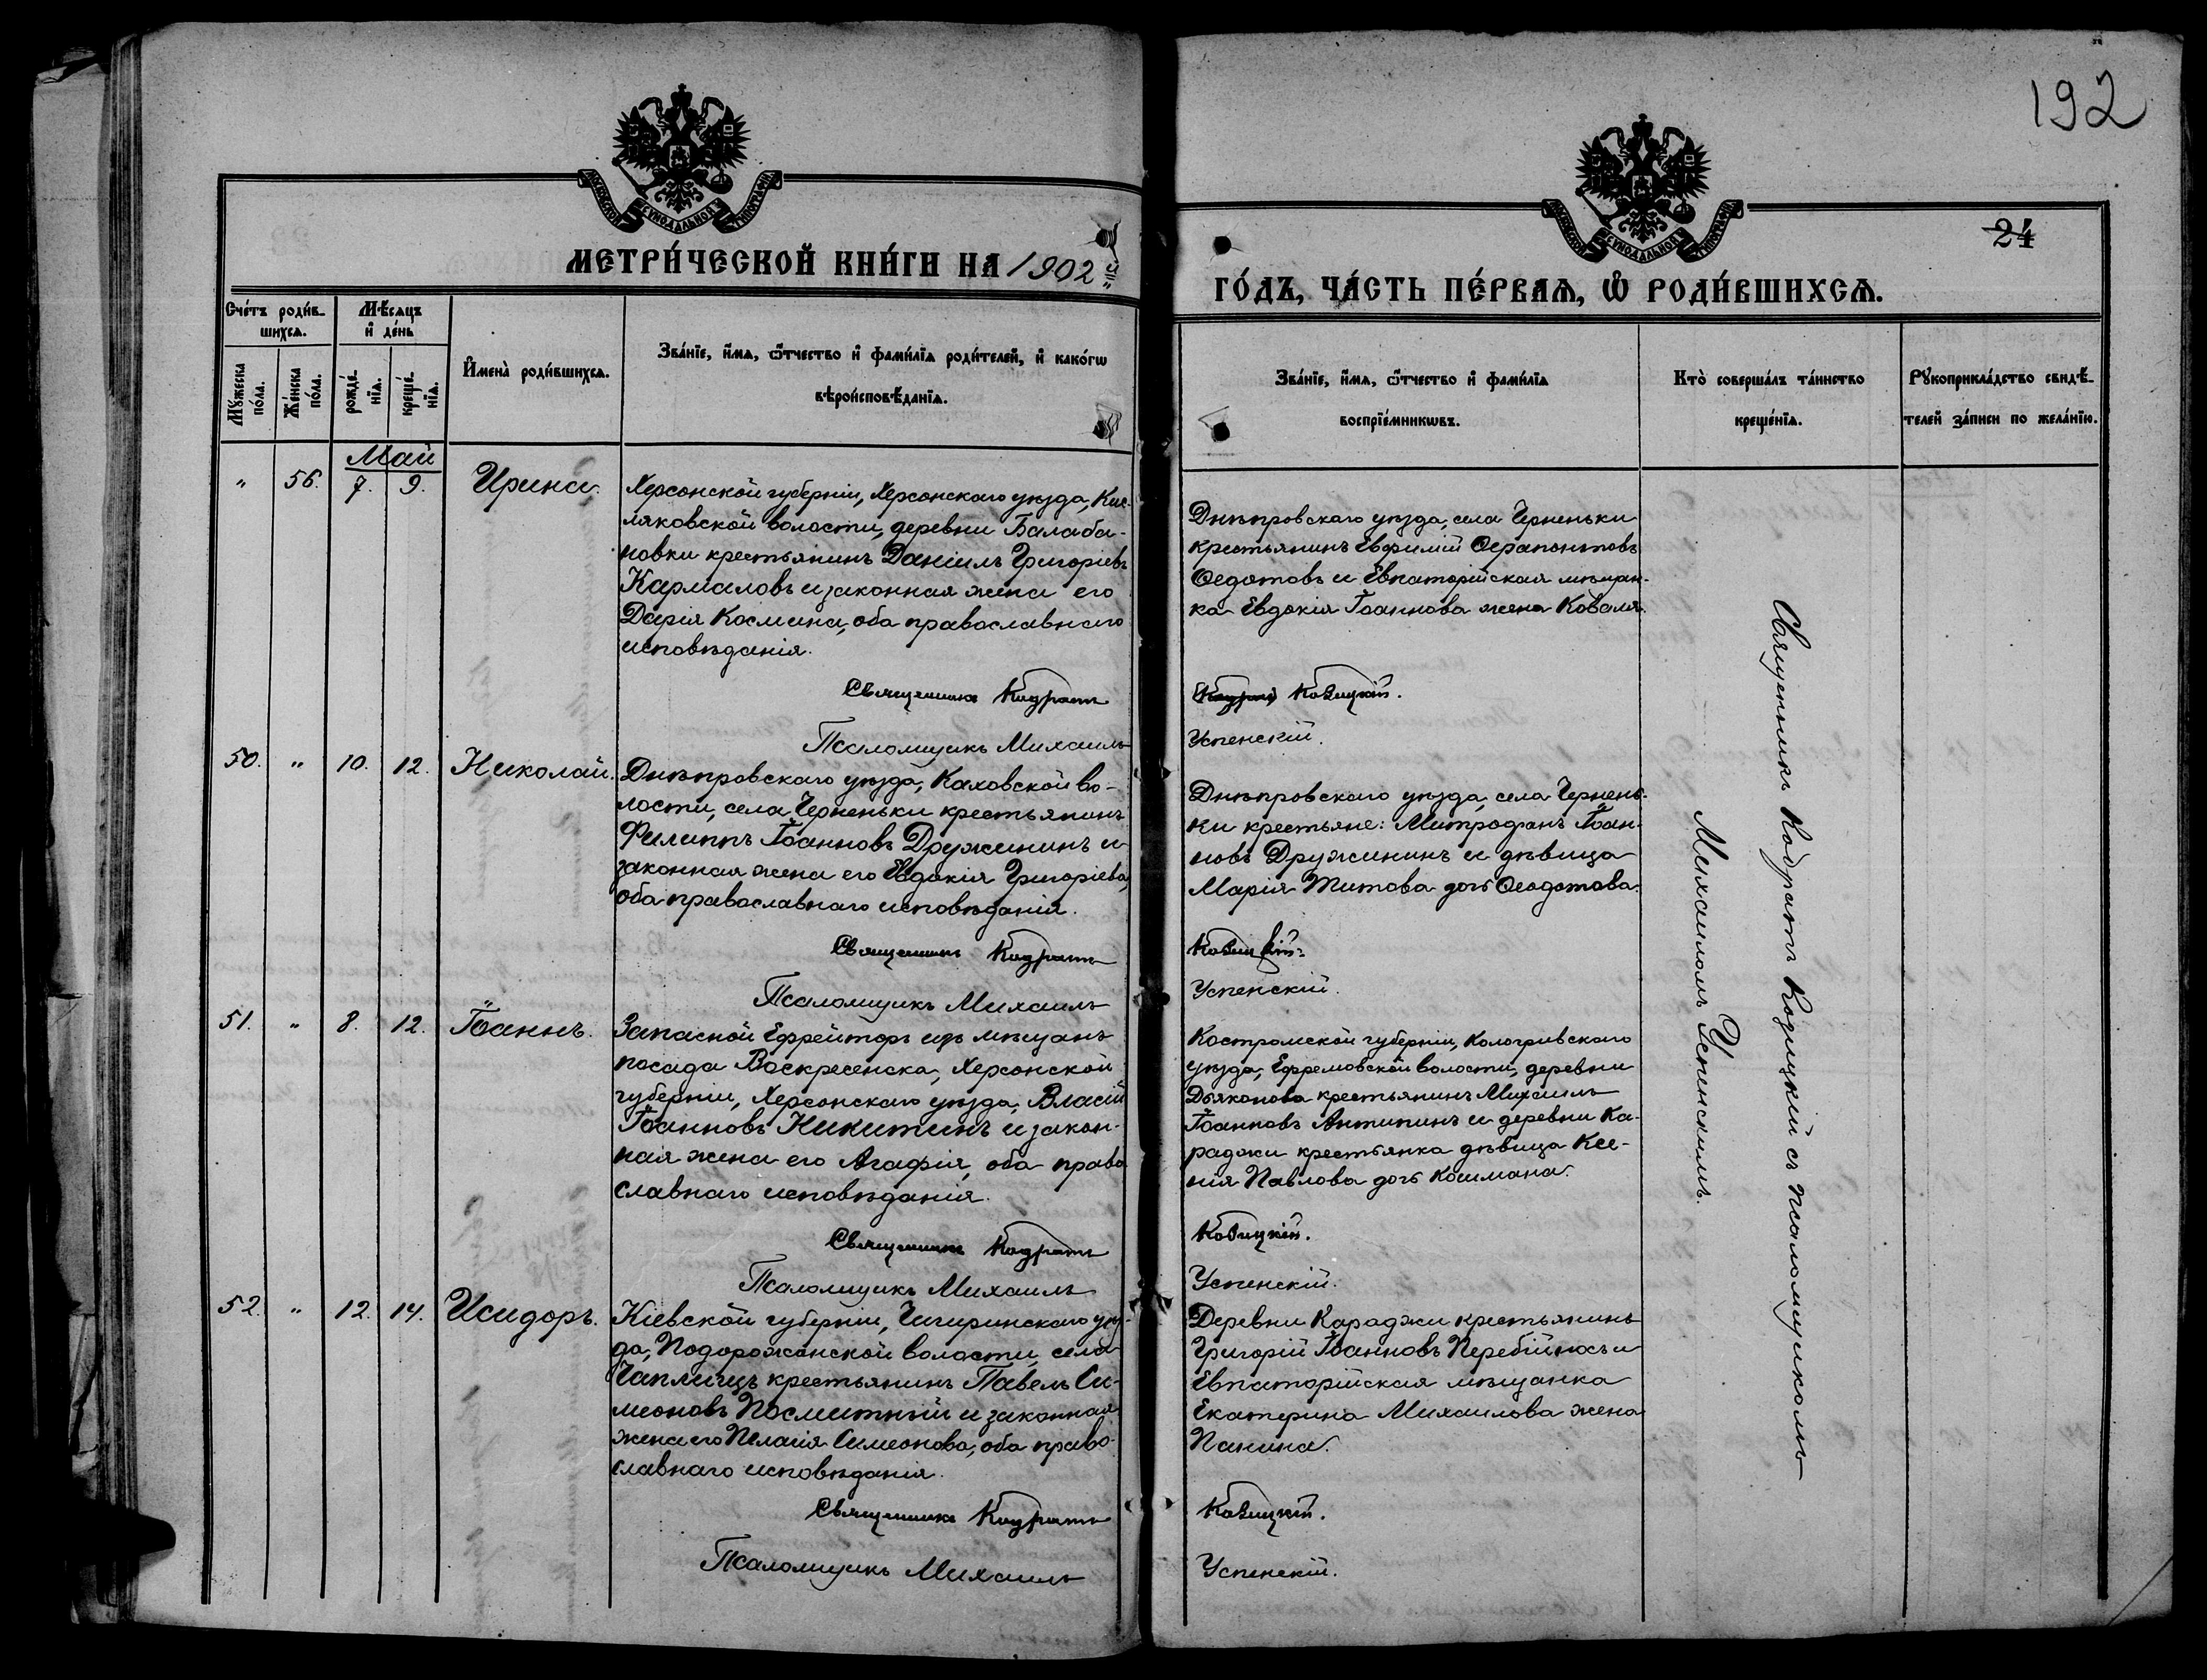 192
24
МОСКОВСКОЙ СѴНОДАЛЬНОЙ ТИПОГРАФІИ
МЕТРИ́ЧЕСКОЙ КНИ́ГИ НА 1902
МОСКОВСКОЙ СѴНОДАЛЬНОЙ ТИПОГРАФІИ
ГО́ДЪ, ЧА́СТЬ ПЕ́РВАѦ, Ѡ҆ РОДИ́ВШИХСѦ.
Сче́тъ роди́в-
шихсѧ.
Мꙋ́жеска по́ла.
Же́нска по́ла.
Мѣ́сѧцъ
и҆ де́нь
рожде́-
нїѧ.
креще́-
нїѧ.
И҆мена̀ роди́вшихсѧ.
Зва́нїе, и҆́мѧ, ѻ҆́тчество и҆ фами́лїѧ роди́телей, и҆ како́гѡ
вѣроисповѣ́данїѧ.
Зва́нїе, и҆́мѧ, ѻ҆́тчество и҆ фами́лїѧ
воспрїе́мникѡвъ.
Кто̀ соверша́лъ та́инство
креще́нїѧ.
Рꙋкоприкла́дство свидѣ́-
телей за́писи по жела́нїю.
Май
" 56. 7. 9. Ирина.
Херсонской губерніи, Херсонскаго уѣзда, Кис-
ляковской волости, деревни Балаба-
новки крестьянинъ Даніилъ Григоріевъ
Кармаловъ и законная жена его
Дарія Космина, оба православнаго
исповѣданія.
Священникъ Кодратъ
Псаломщикъ Михаилъ
Днѣпровскаго уѣзда, села Черненьки
крестьянинъ Евфимій Ѳерапонтовъ
Ѳедотовъ и Евпаторійская мѣщан-
ка Евдокія Іоаннова жена Коваля.
Козицкій.
Успенскій.
50. " 10. 12. Николай.
Днѣпровскаго уѣзда, Каховской во-
лости, села Черненьки крестьянинъ
Филиппъ Іоанновъ Дружининъ и
законная жена его Евдокія Григоріева,
оба православнаго исповѣданія.
Священникъ Кодратъ
Псаломщикъ Михаилъ
Днѣпровскаго уѣзда, села Чернень-
ки крестьяне: Митрофанъ Іоан-
новъ Дружининъ и дѣвица
Марія Титова дочь Ѳеодотова.
Козицкій.
Успенскій.
51. " 8. 12. Іоаннъ.
Запасной Ефрейторъ изъ мѣщанъ
посада Воскресенска, Херсонской
губерніи, Херсонскаго уѣзда, Власій
Іоанновъ Никитинъ и закон-
ная жена его Агафія, оба право
славнаго исповѣданія.
Священникъ Кодратъ
Псаломщикъ Михаилъ
Костромской губерніи, Кологривскаго
уѣзда, Ефремовской волости, деревни
Дьяконова крестьянинъ Михаилъ
Іоанновъ Антипинъ и деревни Ка-
раджи крестьянка дѣвица Ксе-
нія Павлова дочь Кошмана.
Козицкій.
Успенскій.
52. " 12. 14. Исидоръ.
Кіевской губерніи, Чигиринскаго уѣз-
да, Подорожанской волости, села
Чаплищъ крестьянинъ Павелъ Си-
меоновъ Посмитный и законная
жена его Пелагія Симеонова, оба право-
славнаго исповѣданія.
Священникъ Кодратъ
Псаломщикъ Михаилъ
Деревни Караджи крестьянинъ
Григорій Іоанновъ Перебійносъ и
Евпаторійская мѣщанка
Екатерина Михаилова жена
Панина.
Козицкій.
Успенскій.
Священникъ Кодратъ Козицкій съ псаломщикомъ
Михаиломъ Успенскимъ.